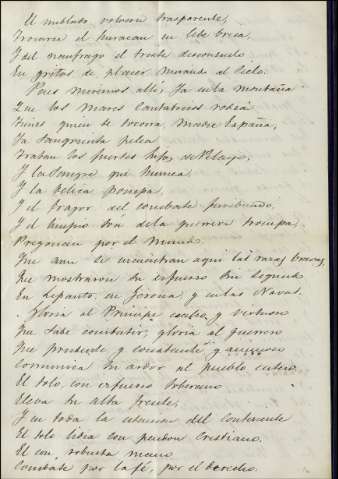 El nublado, volverse trasparente,
Trocarse el huracan en leve brisa,
Y del naufrago el triste desconsuelo
En gritos de placer, mirando al cielo.
Pues miremos alli; Ya en la montaña
Que los mares Cantabricos rodea
Tienes quien te socorra Madre España,
Ya sangrienta pelea
Traban los fuertes hijos de Pelayo,
Y la sangre que humea
Y la belica pompa,
Y el fragor del combate
Y el son de la guerrera trompa,
Pregonan por el Mundo
Que aun se encuentran aqui las razas bravas,
Que mostraron su esfuerzo sin segundo
En Lepanto, en Gerona, y en las Navas.
Gloria al Principe y virtuoso
Que sabe combatir; gloria al guerrero
Que prudente y
Comunica su ardor al pueblo entero.
El solo, con esfuerzo soberano
Eleva su alta frente,
Y en toda la estension del continente
El solo lidia con pendon Cristiano.
El con robusta mano
Combate por la fé, por el derecho.